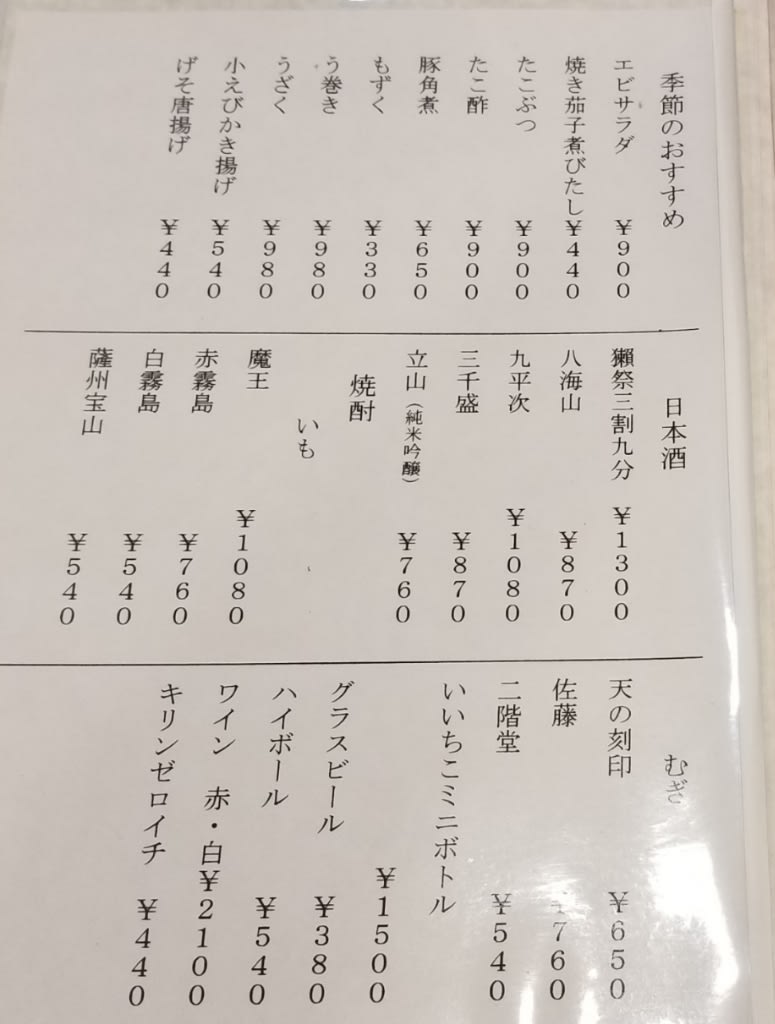 季節のおすすめ
エビサラダ ¥900
焼き茄子煮びたし ¥440
たこぶつ ¥900
たこ酢 ¥900
豚角煮 ¥650
もずく ¥330
う巻き ¥980
うざく ¥980
小えびかき揚げ ¥540
げそ唐揚げ ¥440
日本酒
獺祭三割九分 ¥1300
八海山 ¥870
九平次 ¥1080
三千盛 ¥870
立山（純米吟醸） ¥760
焼酎
いも
魔王 ¥1080
赤霧島 ¥760
白霧島 ¥540
薩州宝山 ¥540
むぎ
天の刻印 ¥650
佐藤 ¥760
二階堂 ¥540
いいちこミニボトル ¥1500
グラスビール ¥380
ハイボール ¥540
ワイン 赤・白 ¥2100
キリンゼロイチ ¥440